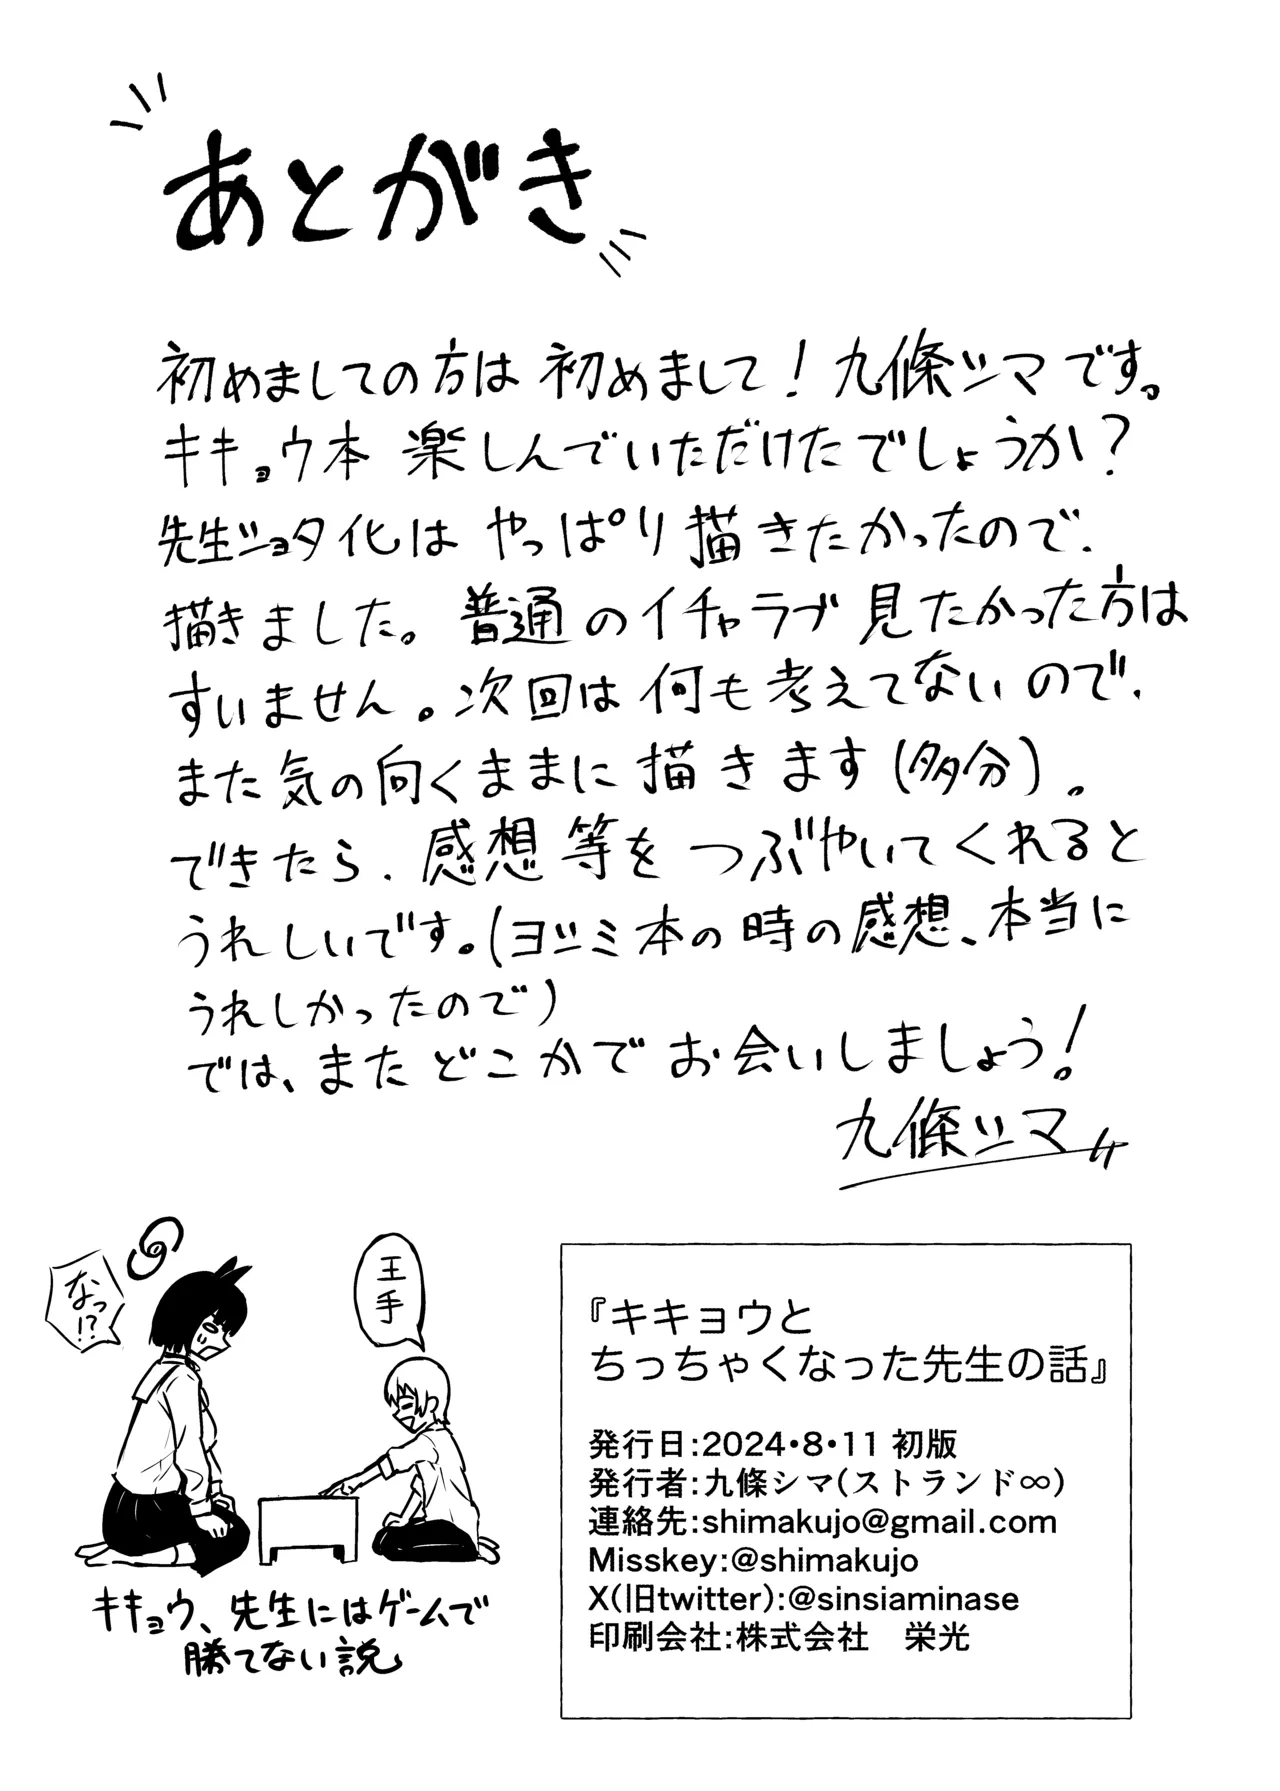 あとがき
初めましての方は 初めまして！九條シマです。
キキョウ本 楽しんでいただけたでしょうか？
先生ショタ化は やっぱり描きたかったので、
描きました。普通のイチャラブ見たかった方は
すいません。次回は何も考えてないので、
また気の向くままに描きます(多分)。
できたら、感想等をつぶやいてくれると
うれしいです。(ヨツミ本の時の感想、本当に
うれしかったので)
では、またどこかでお会いしましょう！
九條シマ
なっ!?
王手
キキョウ、先生にはゲームで
勝てない説
『キキョウと
ちっちゃくなった先生の話』
発行日:2024・8・11 初版
発行者:九條シマ(ストランド∞)
連絡先:shimakujo@gmail.com
Misskey:@shimakujo
X(旧twitter):@sinsiaminase
印刷会社:株式会社　栄光